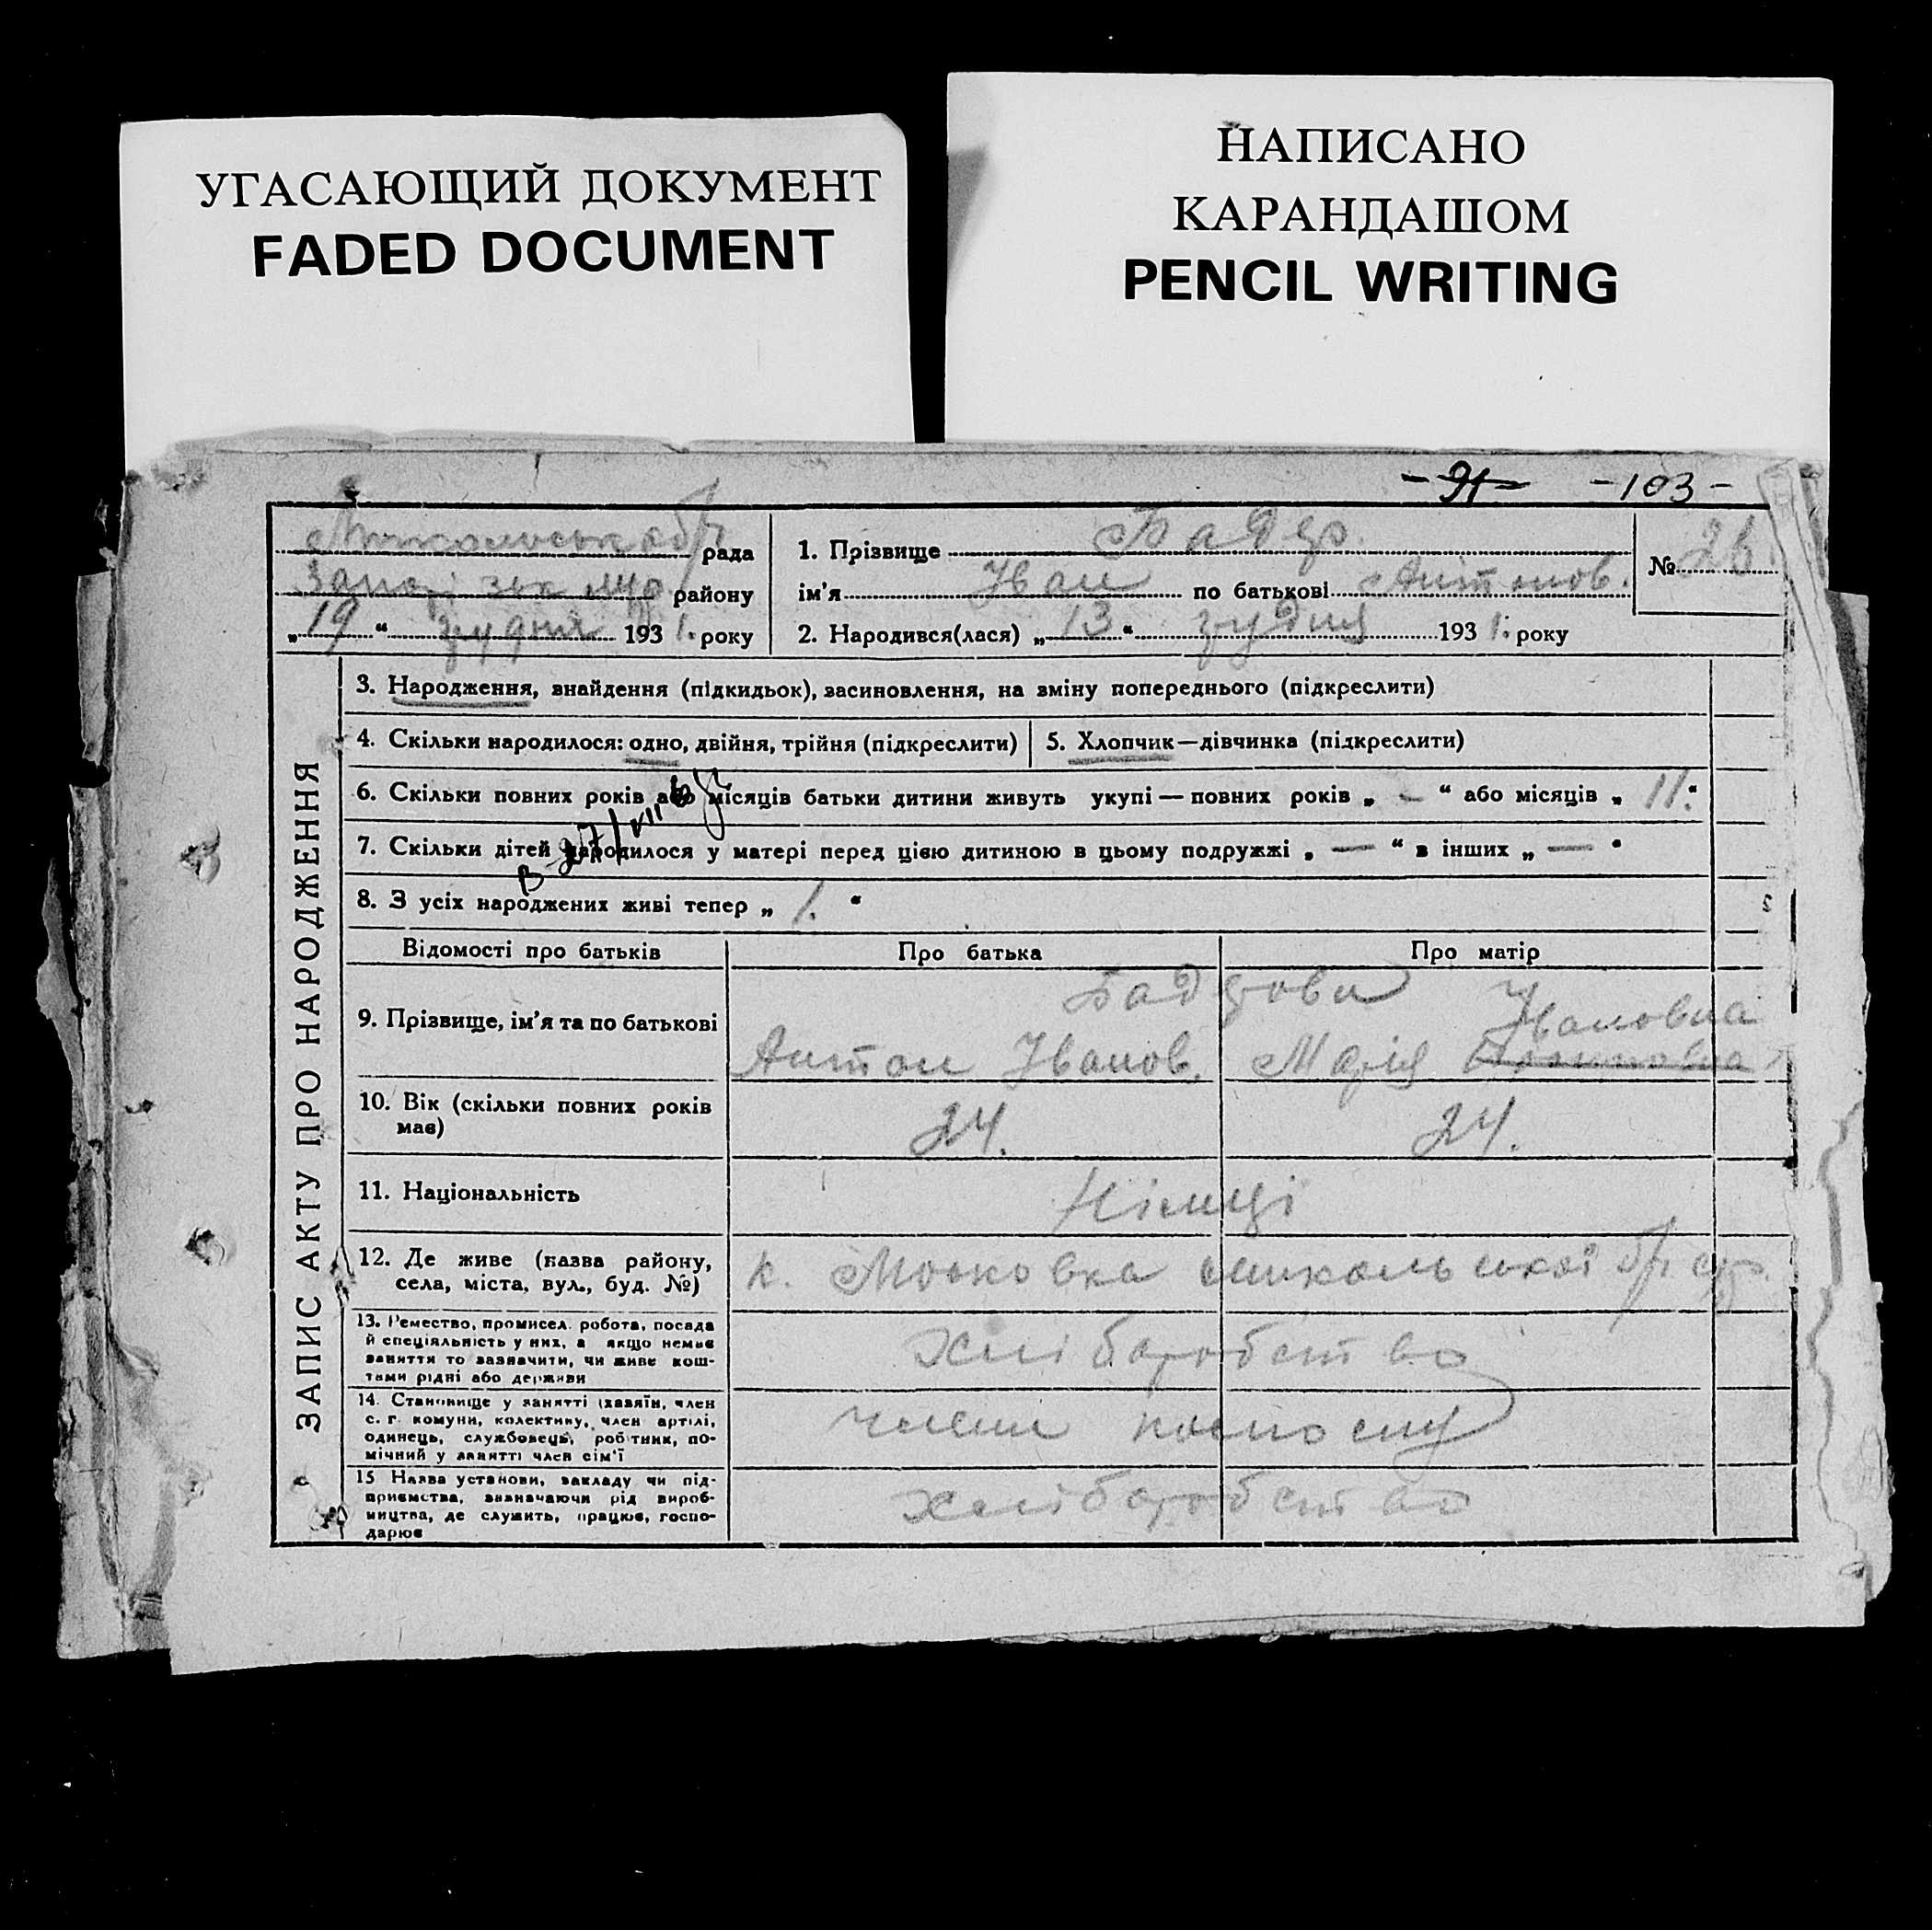 УГАСАЮЩИЙ ДОКУМЕНТ
FADED DOCUMENT
НАПИСАНО
КАРАНДАШОМ
PENCIL WRITING
- 91 - - 103 -
рада
району
„ 19 “ грудня 193 1. року
1. Прізвище Бадер
ім’я Іван по батькові Антонов.
№ 26.
2. Народився(лася) „ 13 “ грудня 193 1. року
ЗАПИС АКТУ ПРО НАРОДЖЕННЯ
3. Народження, внайдення (підкидьок), засиновлення, на зміну попереднього (підкреслити)
4. Скільки народилося: одно, двійня, трійня (підкреслити)
5. Хлопчик — дівчинка (підкреслити)
6. Скільки повних років або місяців батьки дитини живуть укупі — повних років „ — “ або місяців „ 11. “
7. Скільки дітей народилося у матері перед цією дитиною в цьому подружжі „ — “ в інших „ — “
8. З усіх народжених живі тепер „ 1. “
Відомості про батьків Про батька Про матір
9. Прізвище, ім’я та по батькові
Бадерови
Івановна
Антон Іванов. Марія
10. Вік (скільки повних років має)
24. 24.
11. Національність
Німці
12. Де живе (назва району,
села, міста, вул., буд. №)
к. Моськовка Микольської с/р
13. Ремество, промисел. робота, посада
й спеціяльність у них, а якщо немає
заняття то зазначити, чи живе кош-
тами рідні або держави
хліборобство
14. Становище у занятті (хазяїн, член
с. г. комуни, колективу, член артілі,
одинець, службовець, робітник, по-
мічний у занятті член сім’ї
члени колгоспу
15 Назва установи, закладу чи під-
приємства, зазначаючи рід вироб-
ництва, де служить, працює, госпо-
дарює
хліборобство